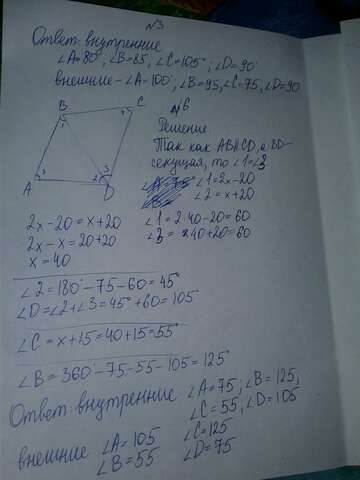 №3
Ответ: внутренние
∠A=80°; ∠B=85, ∠C=105°; ∠D=90°
внешние - ∠A=100°, ∠B=95, ∠C=75, ∠D=90
B C
1
A 3 2 3 D
№6
Решение
Так как AB||CD, а BD-
секущая, то ∠1=∠3
∠1=2x-20
∠2=x+20
2x-20=x+20
2x-x=20+20
x=40
∠1=2·40-20=60
∠3=x40+20=60
∠2=180°-75-60=45°
∠D=∠2+∠3=45°+60=105
∠C=x+15=40+15=55°
∠B=360-75-55-105=125°
Ответ: внутренние ∠A=75; ∠B=125,
∠C=55, ∠D=105
внешние ∠A=105 ∠C=125
∠B=55 ∠D=75